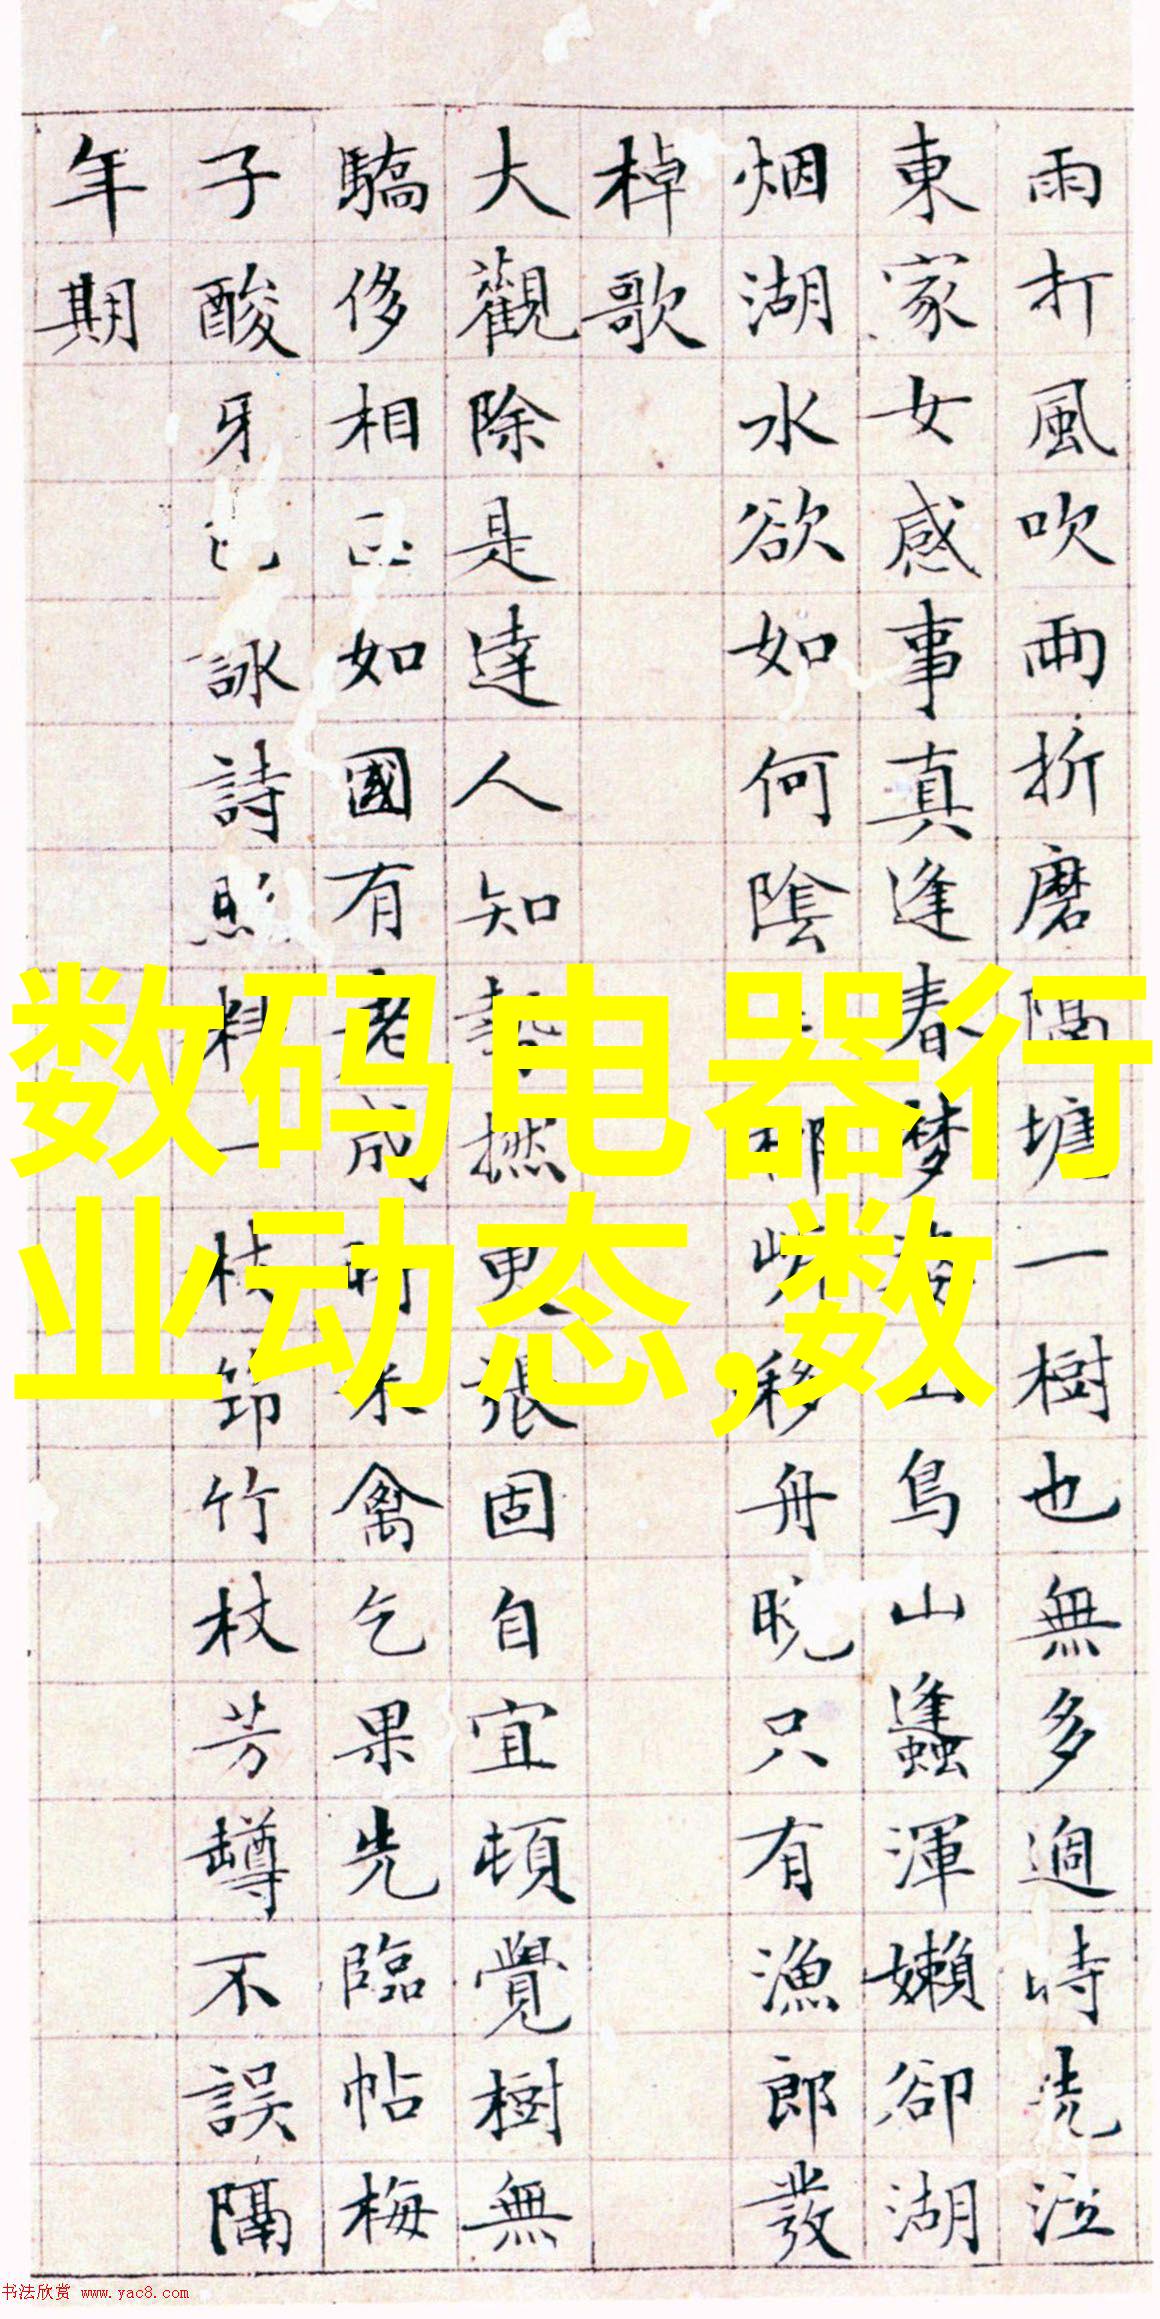 雨打風吹兩折磨隔塘一樹也無多過時洗泣
東家女感事真逢春夢山鳥山蠭渾嬾卻湖
烟湖水欲如何陰移舟晚只有漁郎發
棹歌
大觀除是達人知撚更張固自宜頓覺樹無
驕侈相如國有老成禽乞果先臨帖梅
子酸牙詠詩照一枝節竹杖芳罇不誤隔
年期
数码电器行
业动态,数
书法欣赏 www.yac8.com